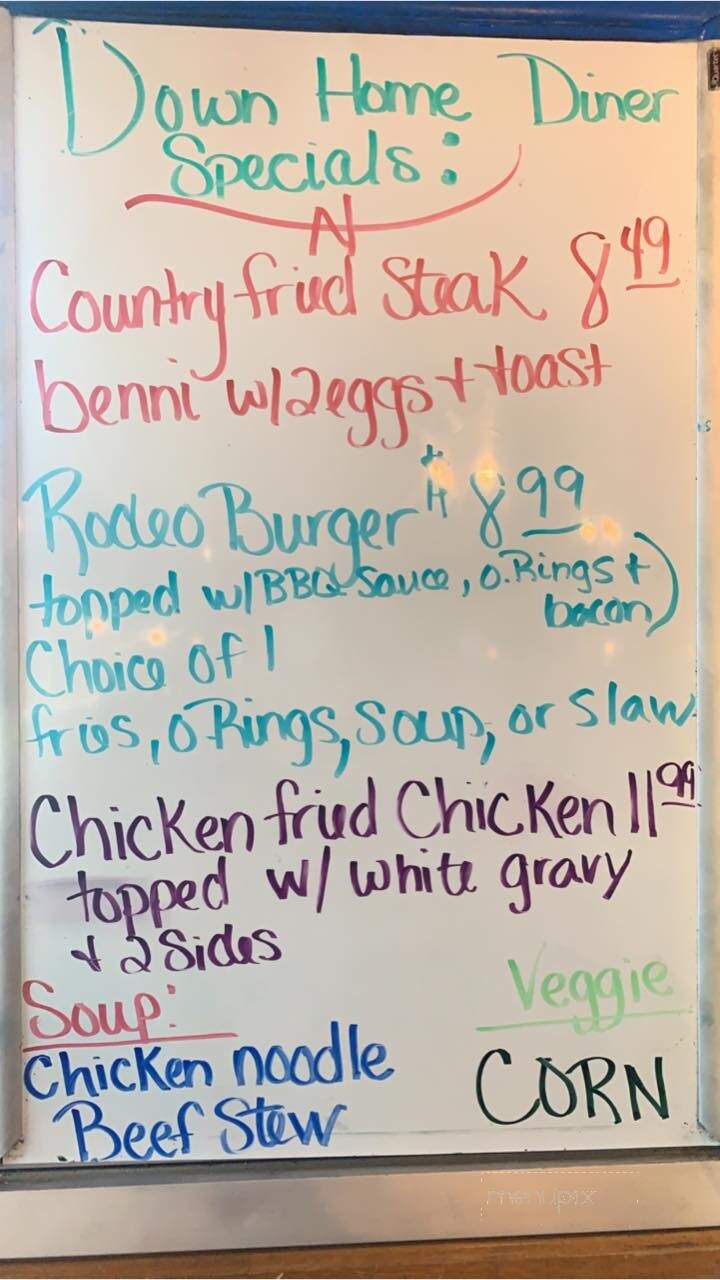 Down Home Diner
Specials:
Country fried Steak 8 49
benni w/2eggs + toast
Rodeo Burger $8 99
topped w/BBQ Sauce, o.Rings +
bacon)
Choice of 1
fries, O Rings, Soup, or Slaw
Chicken fried Chicken 11 99
topped w/ white gravy
+ 2 Sides
Soup:
Veggie
Chicken noodle
CORN
Beef Stew
menupix